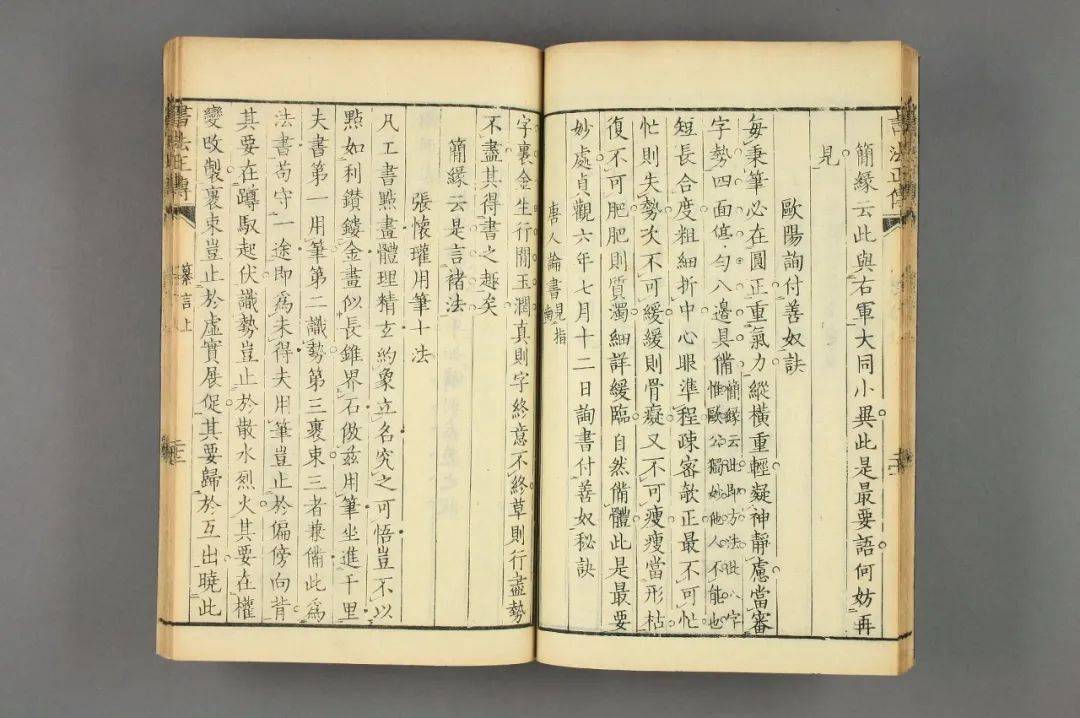 書法正傳
簡緣云此與右軍大同小異此是最要語何妨再
見
歐陽詢付善奴訣
每秉筆必在圓正重氣力縱橫重輕凝神靜慮當審
字勢四面停勻八邊具備簡緣云此即方法此八字
惟歐公獨妙他人不能也
短長合度粗細折中心眼準程疎密欹正最不可忙
忙則失勢次不可緩緩則骨癡又不可瘦瘦當形枯
復不可肥肥則質濁細詳緩臨自然備體此是最要
妙處貞觀六年七月十二日詢書付善奴秘訣
唐人論書見指
南
字裏金生行間玉潤真則字終意不終草則行盡勢
不盡其得書之趣矣
簡緣云是言褚法
張懷瓘用筆十法
凡工書點畫體理精玄約象立名究之可悟豈不以
點如利鑽鏤金畫似長錐界石倣茲用筆坐進千里
夫書第一用筆第二識勢第三裹束三者兼備此為
法書苟守一途即為未得夫用筆豈止於偏傍向背
其要在蹲馭起伏識勢豈止於散水烈火其要在權
變改製裹束豈止於虛實展促其要歸於互出曉此
書法正傳
纂言上